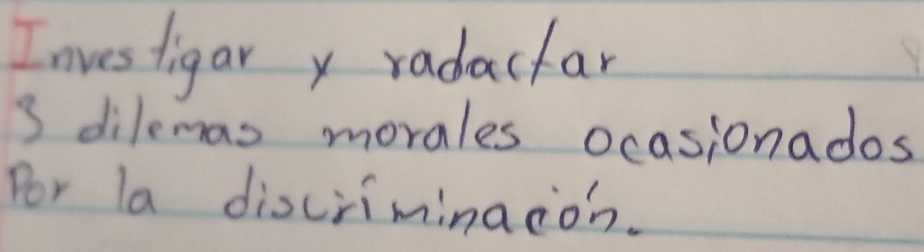 Investigar y radactar
3 dilemas morales ocasionados
Por la discriminación.